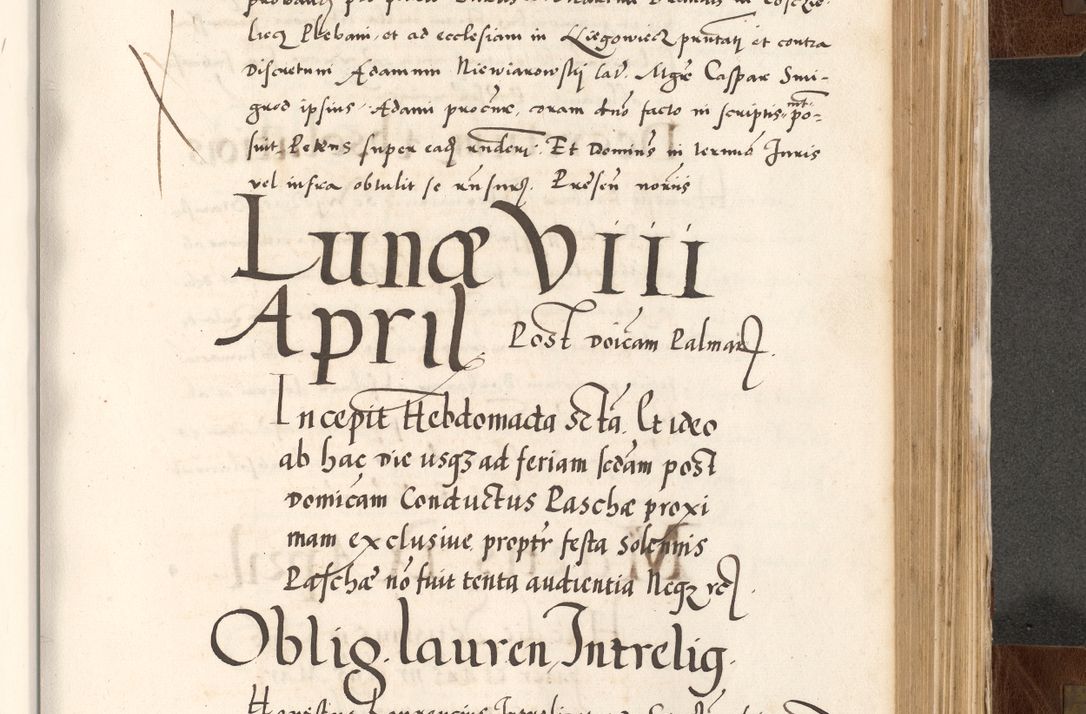 liecz Plebani et ad ecclesiam in Liegowiecz pñtati et contra
Discretum Adamum Niewiarowskj laỽ. Mgr̄ Caspar Smi-
grod ipsius Adami procur, coram dno facto in scriptis mt po-
suit Petens super eadȝ rnderi. Et Dominus in termino Juris
vel infra obtulit se rnsurȝ. Presen̄ noriis
Lunæ VIII
April. Post Doīcam Palmarȝ.
Incepit Hebdomada Sctā. Et ideo
ab hac die usqȝ ad feriam scdām post
Domicam Conductus Paschæ proxi
mam exclusive proptr̄ festa solennis
Paschæ nō fuit tenta audientia Neqȝ rē.
Oblig. lauren Intrelig.